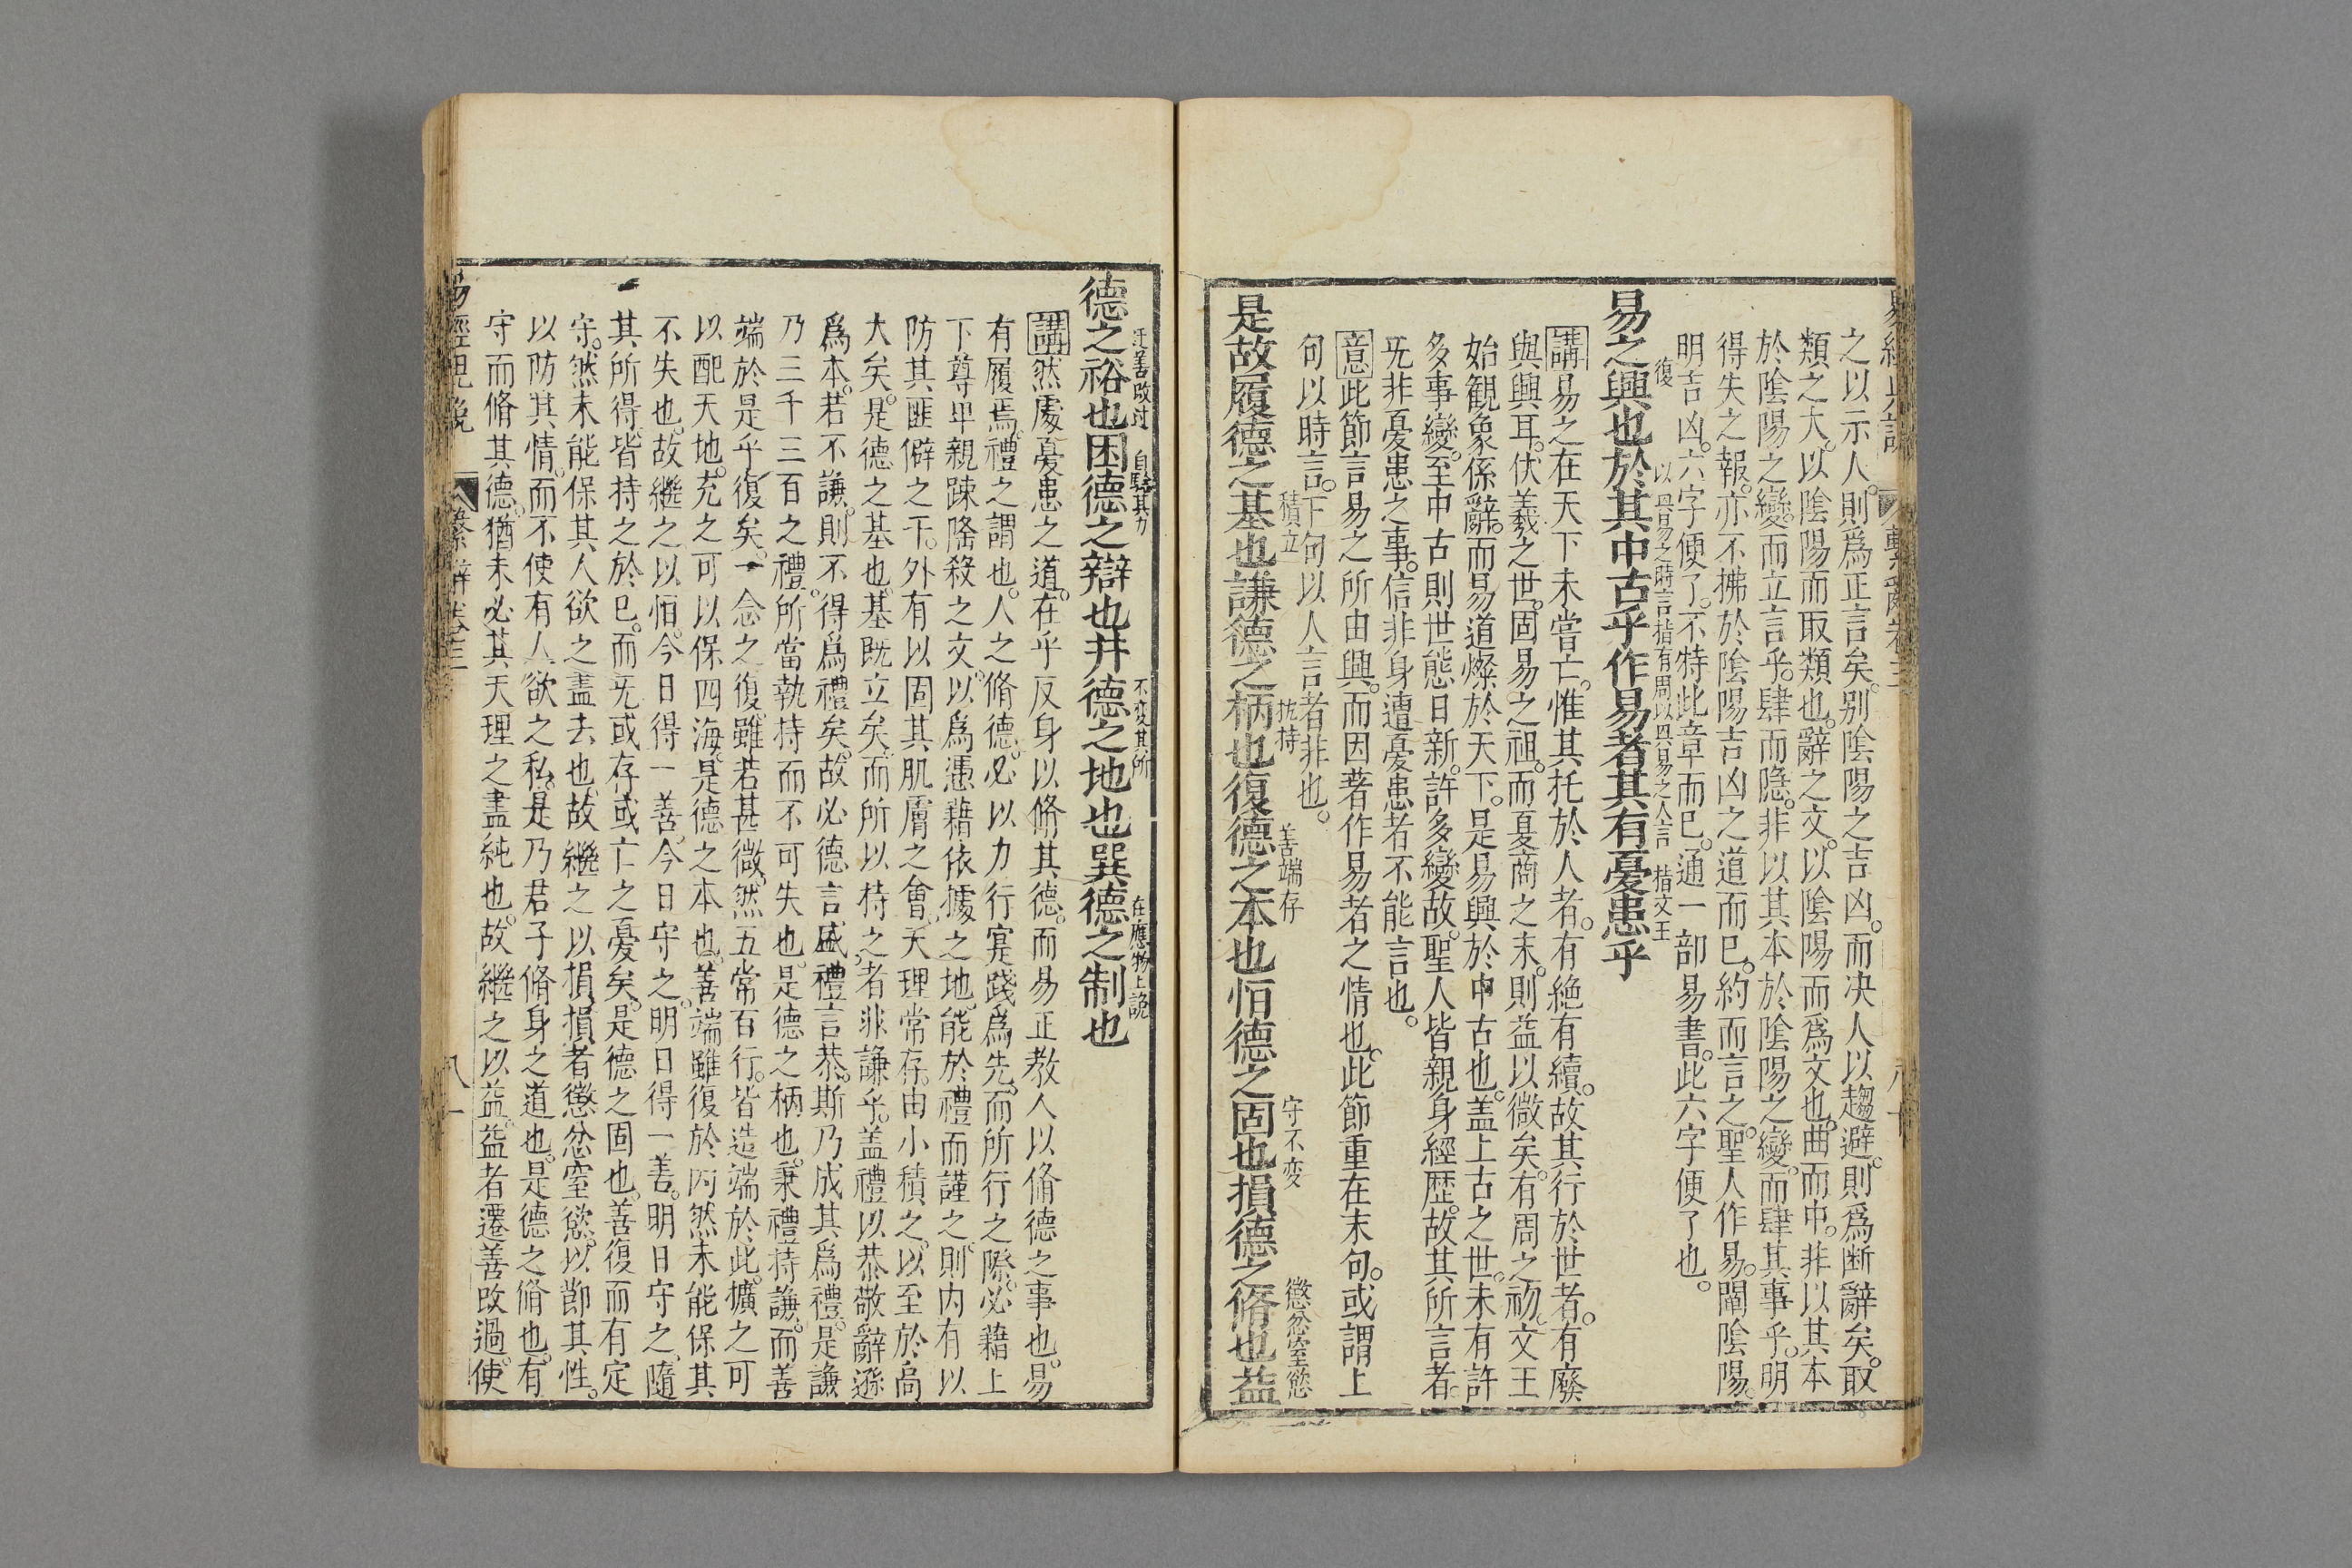 之以示人。則爲正言矣。別陰陽之吉凶。而决人以趨避。則爲断辭矣。取
類之大。以陰陽而取類也。辭之文。以陰陽而爲文也。曲而中。非以其本
於陰陽之變。而立言乎。肆而隐。非以其本於陰陽之變。而肆其事乎。明
得失之報。亦不拂於陰陽吉凶之道而已。約而言之。聖人作易。闡陰陽。
明吉凶。六字便了。不特此章而已。通一部易書。此六字便了也。
復 以易之時言指有周以興易之人言 指文王
易之興也於其中古乎作易者其有憂患乎
講易之在天下未嘗亡。惟其托於人者。有絶有續。故其行於世者。有廢
與興耳。伏羲之世。固易之祖。而夏商之末。則益以微矣。有周之初。文王
始観象係辭。而易道燦於天下。是易興於中古也。盖上古之世。未有許
多事變。至中古則世態日新。許多變故。聖人皆親身經歴。故其所言者。
旡非憂患之事。信非身遭憂患者不能言也。
意此節言易之所由興。而因著作易者之情也。此節重在末句。或謂上
句以時言。下句以人言者非也。
積立 抗持 善端存 守不变 懲忿窒慾
是故履德之基也謙德之柄也復德之本也恒德之固也損德之脩也益
迁善改过 自騐其力 不变其所 在應物上說
德之裕也困德之辯也井德之地也巽德之制也
講然處憂患之道。在乎反身以脩其德。而易正教人以脩德之事也。易
有履焉。禮之謂也。人之脩德。必以力行寔踐爲先。而所行之際。必藉上
下尊卑親踈隆殺之文。以爲憑藉依據之地。能於禮而謹之。則内有以
防其匪僻之干。外有以固其肌膚之會。天理常存。由小積之。以至於高
大矣。是德之基也。基既立矣。而所以持之者非謙乎。盖禮以恭敬辭遜
爲本。若不謙。則不得爲禮矣。故必德言盛。禮言恭。斯乃成其爲禮。是謙
乃三千三百之禮。所當執持而不可失也。是德之柄也。秉禮持謙。而善
端於是乎復矣。一念之復。雖若甚微。然五常百行。皆造端於此。擴之可
以配天地。充之可以保四海。是德之本也。善端雖復於内。然未能保其
不失也。故繼之以恒。今日得一善。今日守之。明日得一善。明日守之。隨
其所得。皆持之於已。而旡或存或亡之憂矣。是德之固也。善復而有定
守。然未能保其人欲之盡去也。故繼之以損。損者懲忿窒慾。以節其性。
以防其情。而不使有人欲之私。是乃君子脩身之道也。是德之脩也。有
守而脩其德。猶未必其天理之盡純也。故繼之以益。益者遷善改過。使